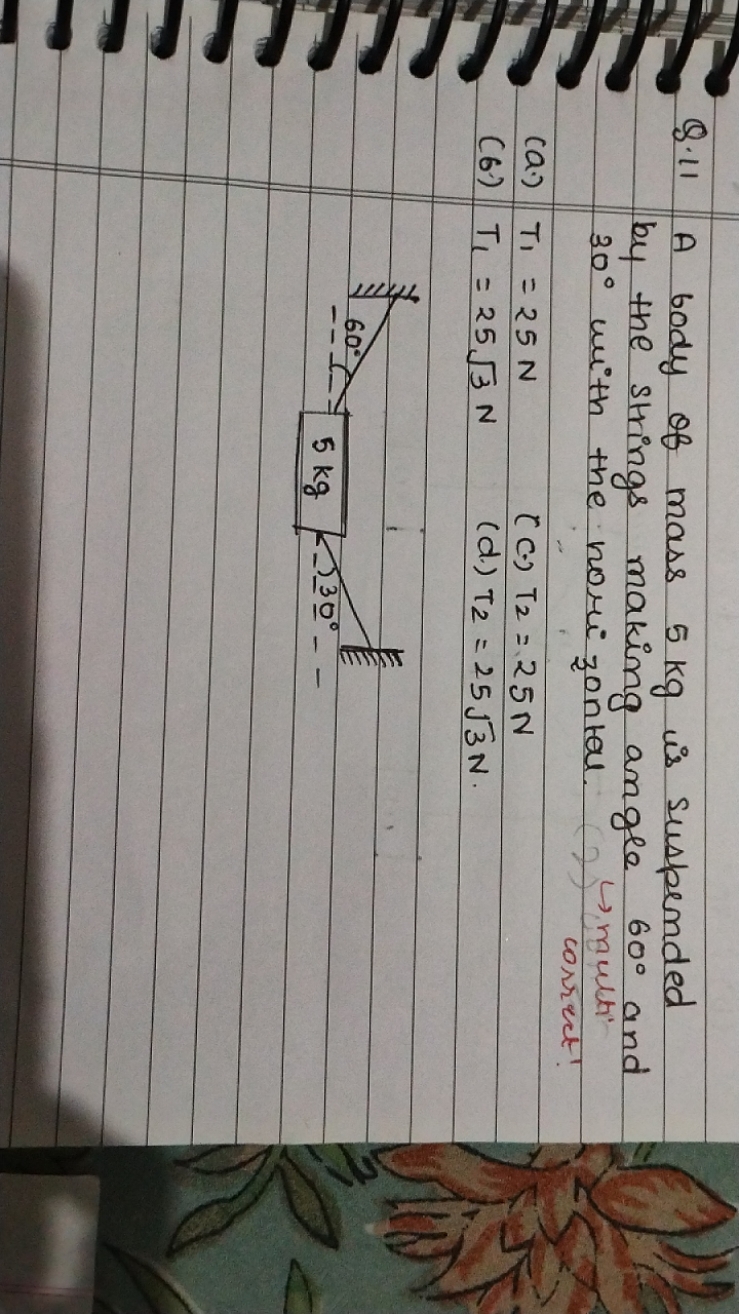 Q.11 A body of mass 5 kg is suspended
by the strings making angle 60° and
30° with the horizontal. (2) ↳ multi
correct!
(a.) T1 = 25 N (c.) T2 = 25 N
(b.) T1 = 25√3 N (d.) T2 = 25√3 N.
60° 30°
5 kg